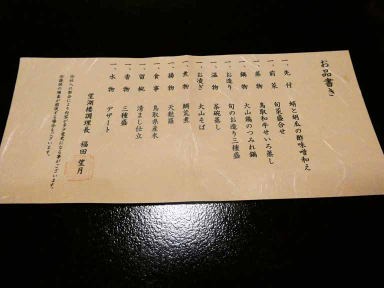 お品書き
一、先付 蛸と胡瓜の酢味噌和え
一、前菜 旬菜盛合せ
一、蒸物 鳥取和牛せいろ蒸し
一、鍋物 大山鶏のつみれ鍋
一、お造り 旬のお造り三種盛
一、温物 茶碗蒸し
一、お凌ぎ 大山そば
一、煮物 鯛荒煮
一、揚物 天麩羅
一、食事 鳥取県産米
一、留椀 清まし仕立
一、香物 三種盛
一、水物 デザート
望湖楼調理長 福田 望月